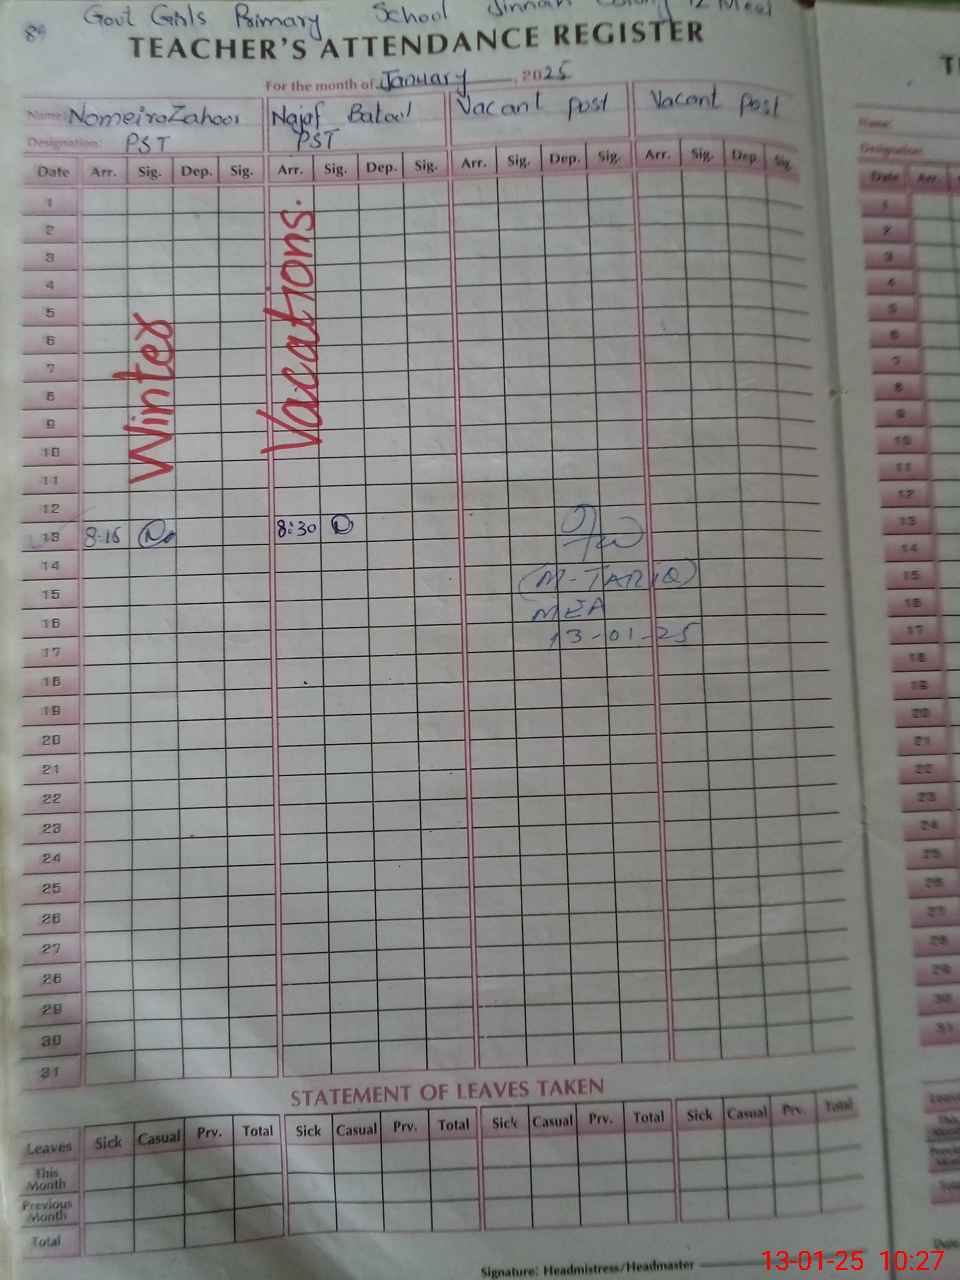 Govt Girls Primary School Jinnah Colony 12 Meel
TEACHER'S ATTENDANCE REGISTER
For the month of January, 2025
Name: Nomeira Zahoor Najaf Batool Vacant post Vacant post
Designation: PST PST
Date Arr. Sig. Dep. Sig. Arr. Sig. Dep. Sig. Arr. Sig. Dep. Sig. Arr. Sig. Dep. Sig.
1
2
3
4
5
6
7
8
9
10
11
12
Winter Vacations.
13 8:15 8:30
14
15 (M-TARIQ)
16 MEA
17 13-01-25
18
19
20
21
22
23
24
25
26
27
28
29
30
31
STATEMENT OF LEAVES TAKEN
Leaves Sick Casual Prv. Total Sick Casual Prv. Total Sick Casual Prv. Total Sick Casual Prv. Total
This Month
Previous Month
Total
Signature: Headmistress/Headmaster
Name:
Designation:
Date Arr.
1
2
3
4
5
6
7
8
9
10
11
12
13
14
15
16
17
18
19
20
21
22
23
24
25
26
27
28
29
30
31
13-01-25 10:27